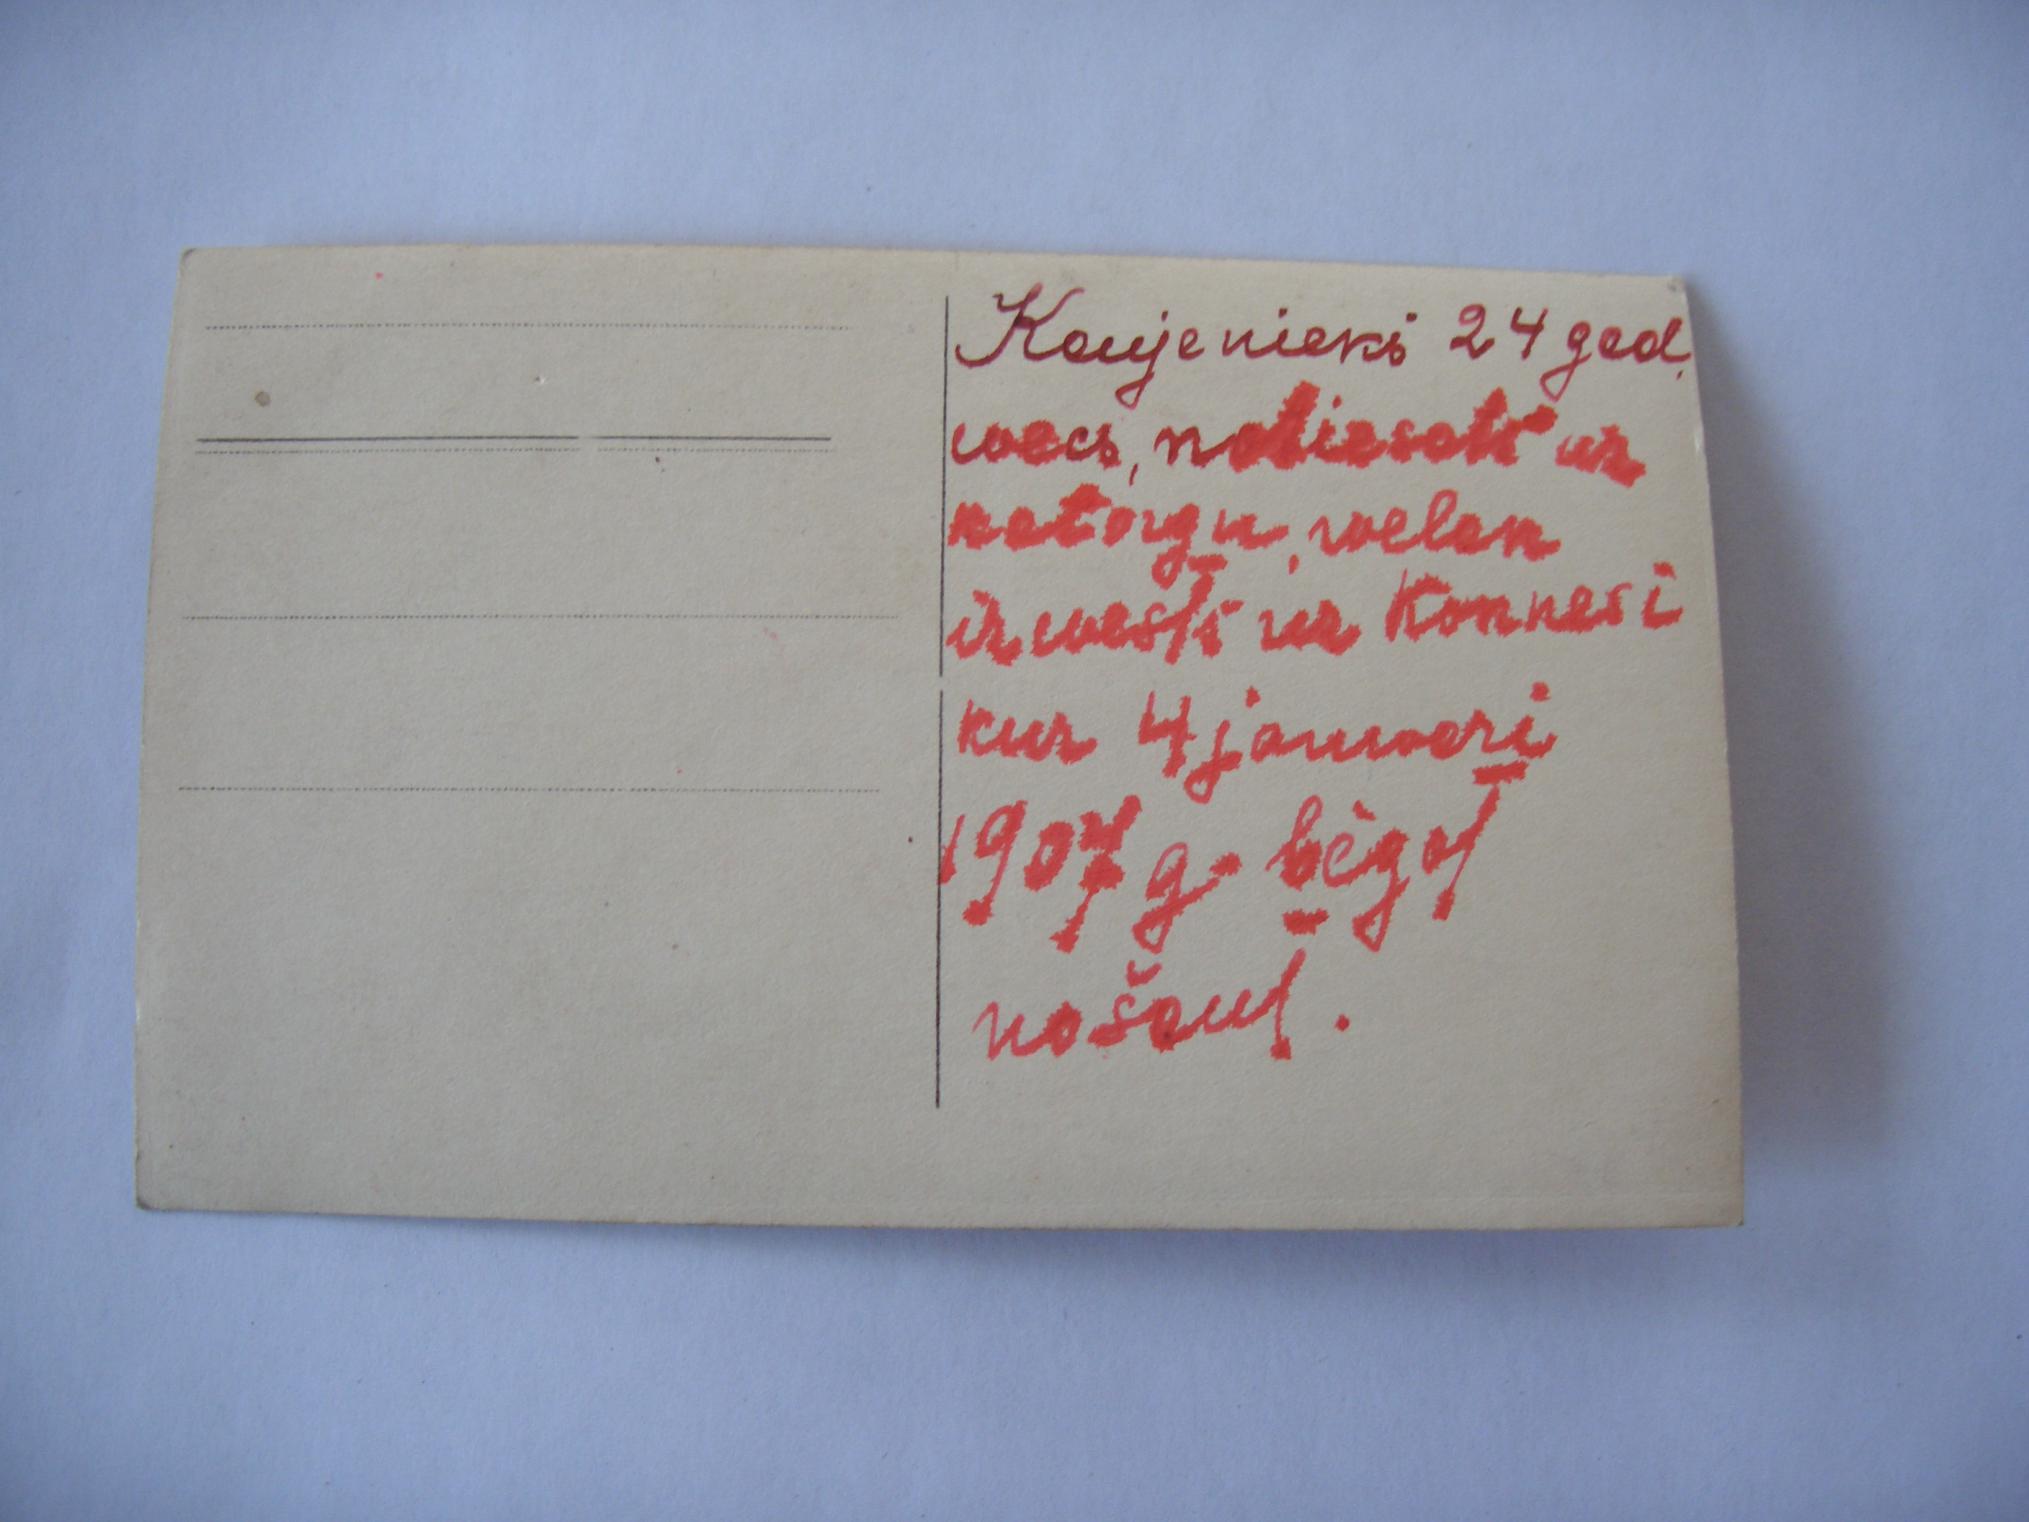 Kaujenieks 24 gad.
wecs, notiesats uz
katorgu, welak
izwests uz Konnesi
kur 4 janwari
1907 g. bēgot
nošaut.